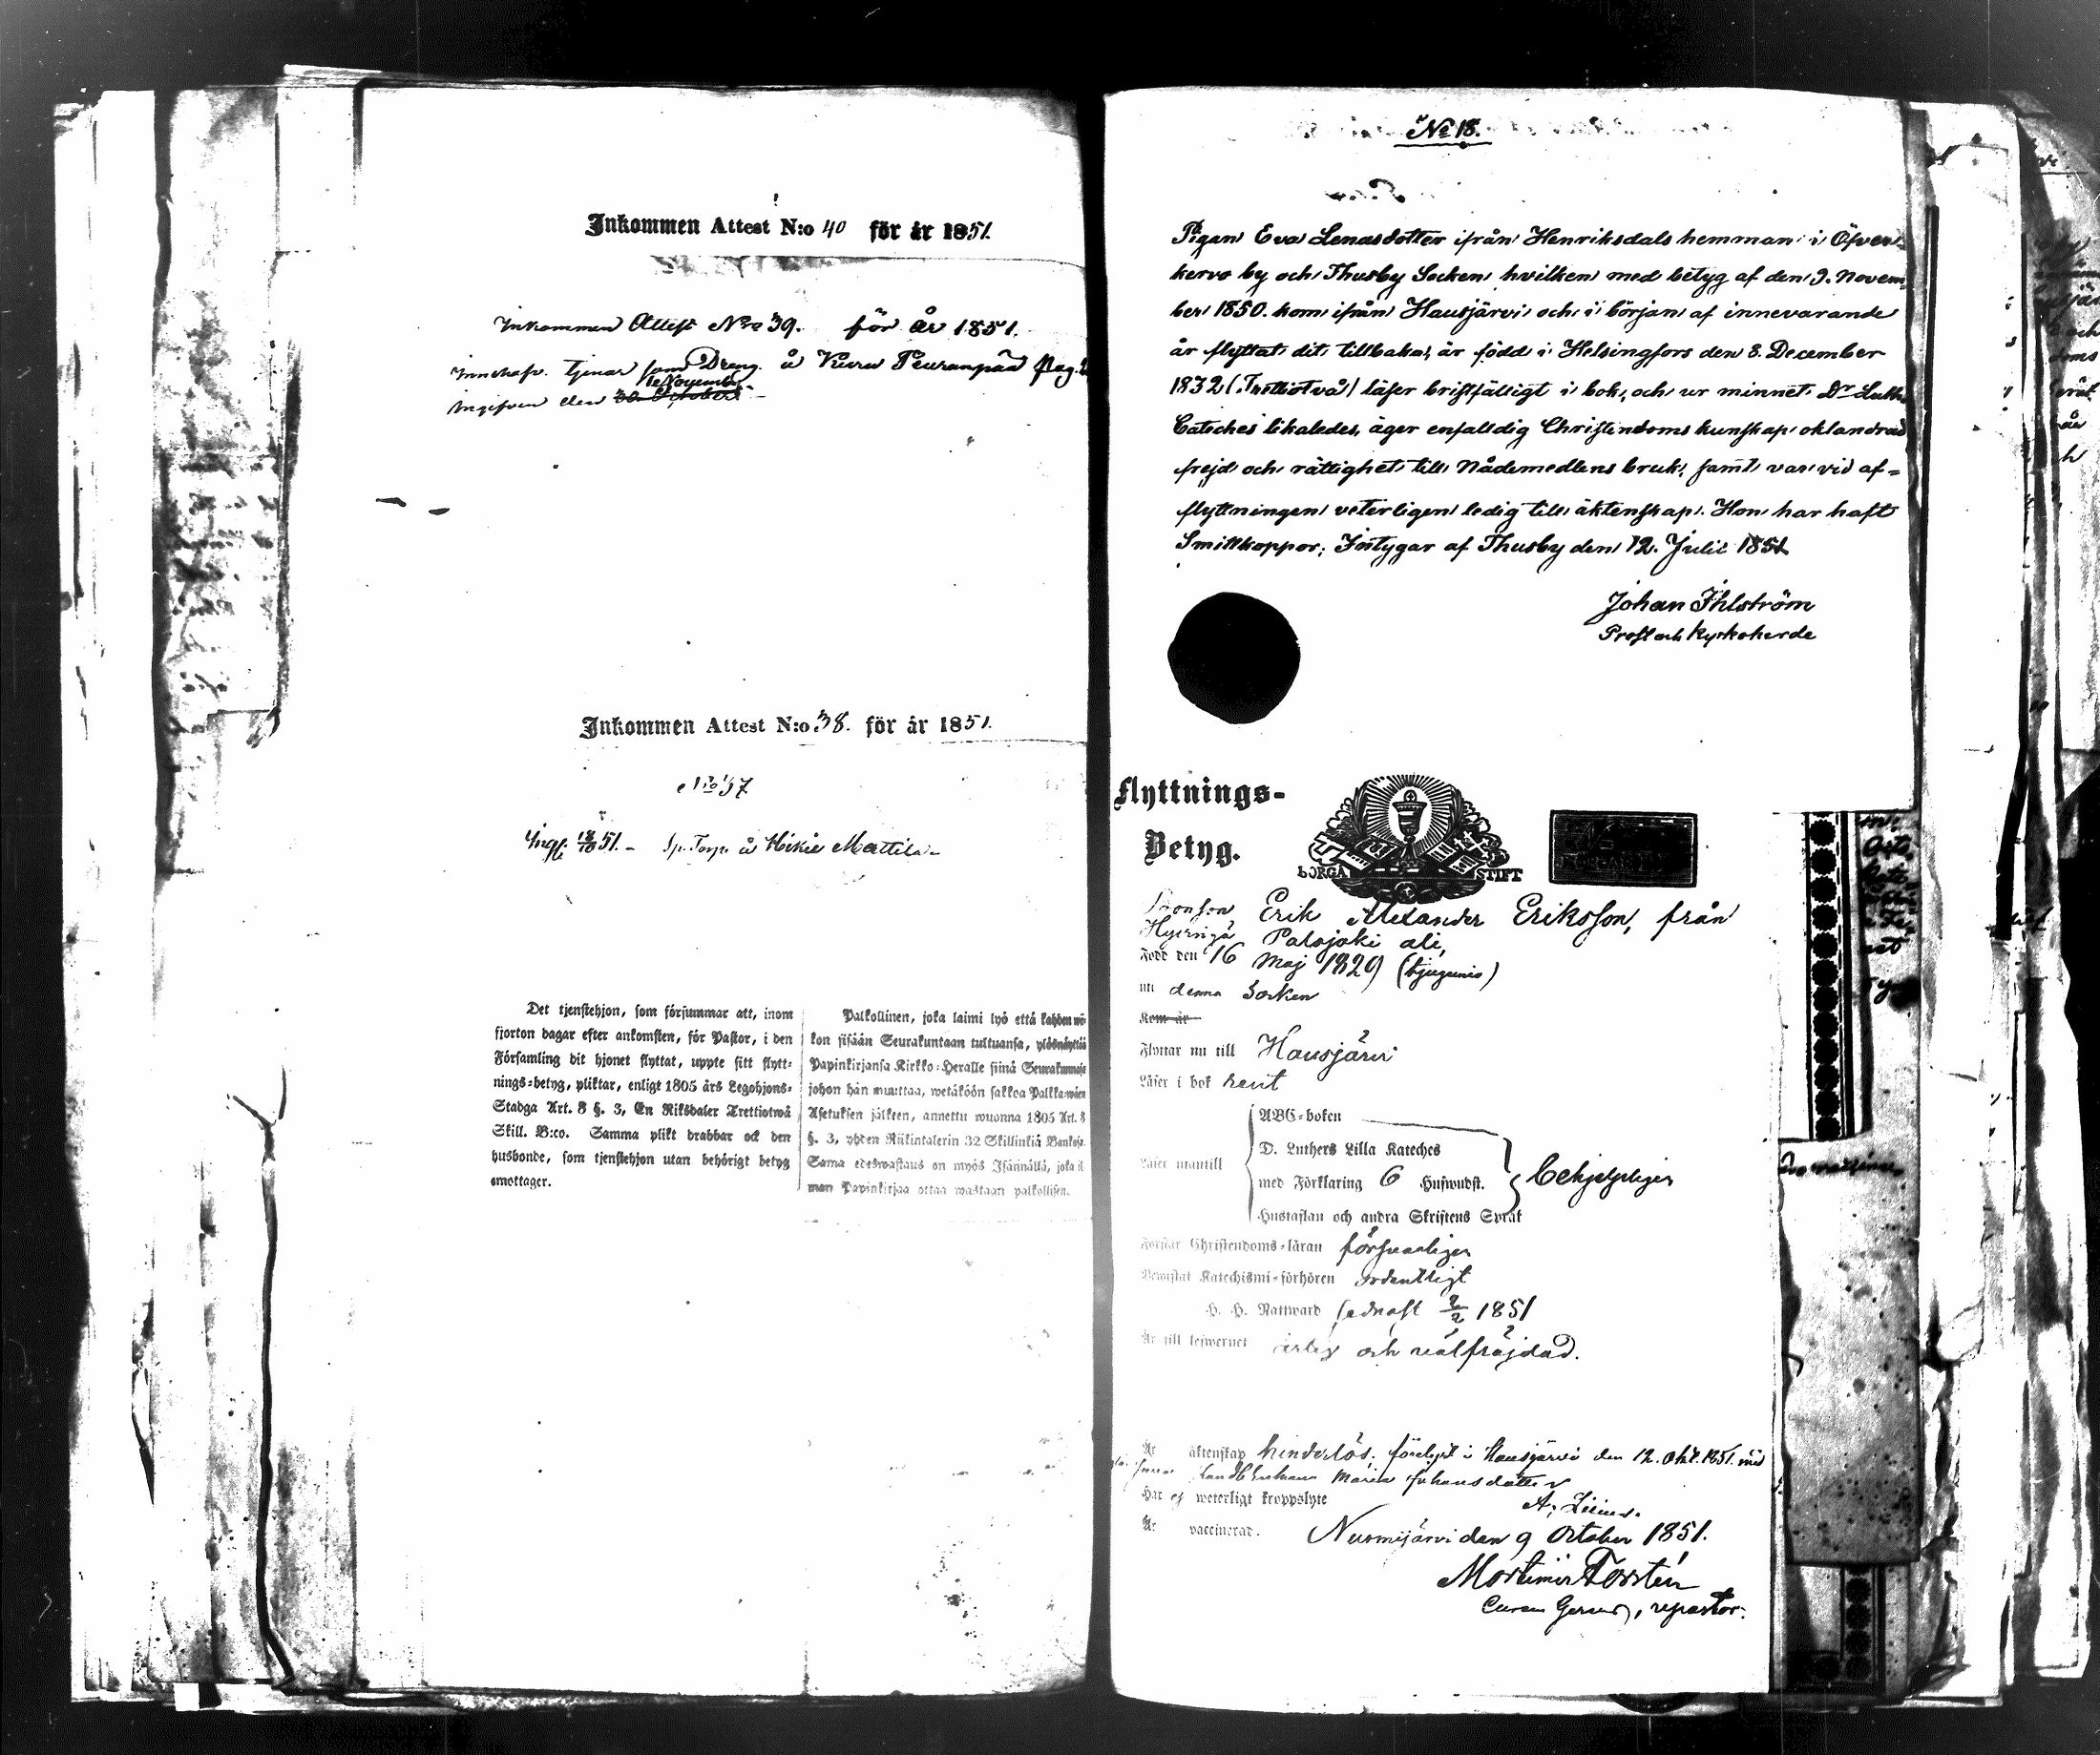 Inkommen Attest N:o 40 för år 1851.
Inkommen Attest No 39. för år 1851.
Innehafv. tjenar som Dreng å Kuru Peuranpää Pag.
ingifven den 30 October
November
Inkommen Attest N:o 38. för år 1851.
No 37
Ingf. 18/10 51. - Sp. Torp. å Hikiä Mattila
Det tjenstehjon, som försummar att, inom
fjorton dagar efter ankomsten, för Pastor, i den
Församling dit hjonet flyttat, uppte sitt flytt-
nings-betyg, pliktar, enligt 1805 års Legohjons-
Stadga Art. 8 §. 3, En Riksdaler Trettiotwå
Skill. B:co. Samma plikt drabbar ock den
husbonde, som tjenstehjon utan behörigt betyg
emottager.
Palkollinen, joka laimi lyö että kahden wii-
kon sisään Seurakuntaan tultuansa, ylösnäyttää
Papinkirjansa Kirkko-Heralle siinä Seurakunnasa
johon hän muuttaa, wetäköön sakkoa Palkkawäen
Asetuksen jälkeen, annettu wuonna 1805 Art. 8
§. 3, yhden Riikintalerin 32 Skillinkiä Bankosa.
Sama edeswastaus on myös Isännällä, joka il
man Papinkirjaa ottaa wastaan palkollisen.
No 18.
Pigan Eva Lenasdotter ifrån Henriksdals hemman i Öfver
kervo by och Thusby Socken, hvilken med betyg af den 9. Novem-
ber 1850. kom ifrån Hausjärvi och i början af innevarande
år flyttat dit tillbaka, är född i Helsingfors den 8. December
1832 (.Trettiotvå) läser bristfälligt i bok, och ur minnet Dr Luth.
Cateches likaledes, äger enfalldig Christendoms kunskap, oklandrad
frejd och rättighet till Nådemedlens bruk, samt var vid af-
flyttningen veterligen ledig till äktenskap. Hon har haft
Smittkoppor; Intygar af Thusby den 12. Julii 1851
Johan Ihlström
Prost och Kyrkoherde
Flyttnings-
Betyg.
BORGÅ STIFT
Sonson Erik Alexander Eriksson, från
Hyvingä Palojoki ali,
Född den 16 Maj 1829 (tjugunio)
uti denna Socken
Kom år
Flyttar nu till Hausjärvi
Läser i bok rent
ABC-boken
D. Luthers Lilla Kateches
Läser utantill med Förklaring 6 Hufwudst.
Hustaflan och andra Skriftens Språk
Förstår Christendoms-läran försvarligen
Bewistat Katechismi-förhören ordentligt
H. H. Nattward sednast 2/2 1851
Är till lefwernet ärlig och välfräjdad.
Är äktenskap hinderlös. förelyst i Hausjärvi den 12. Okt. 1851. med
Maria Johansdotter
Har ej weterligt kroppslyte
Är vaccinerad. Nurmijärvi den 9 October 1851.